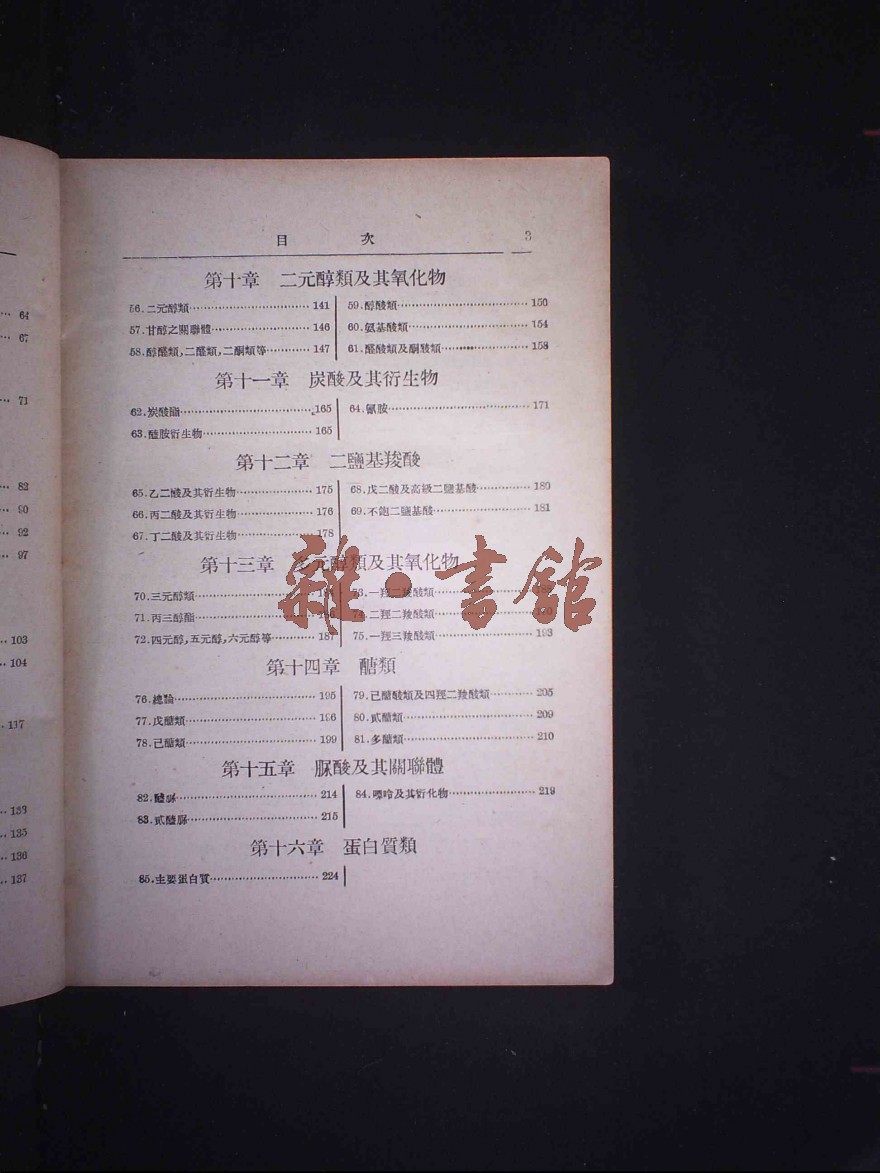 目 次 3
第十章 二元醇類及其氧化物
56.二元醇類 141
57.甘醇之關聯體 146
58.醇醛類,二醛類,二酮類等 147
59.醇酸類 150
60.氨基酸類 154
61.醛酸類及酮酸類 158
第十一章 炭酸及其衍生物
62.炭酸酯 165
63.醯胺衍生物 165
64.氰胺 171
第十二章 二鹽基羧酸
65.乙二酸及其衍生物 175
66.丙二酸及其衍生物 176
67.丁二酸及其衍生物 178
68.戊二酸及高級二鹽基酸 180
69.不飽二鹽基酸 181
第十三章 多元醇類及其氧化物
70.三元醇類
71.丙三醇酯
72.四元醇,五元醇,六元醇等 187
73.一羥二羧酸類
74.二羥二羧酸類 190
75.一羥三羧酸類 193
第十四章 醣類
76.總論 195
77.戊醣類 196
78.已醣類 199
79.已醣酸類及四羥二羧酸類 205
80.貳醣類 209
81.多醣類 210
第十五章 脲酸及其關聯體
82.醯脲 214
83.貳醯脲 215
84.嘌呤及其衍化物 219
第十六章 蛋白質類
85.主要蛋白質 224
64
67
71
82
90
92
97
103
104
117
133
135
136
137
雜·書館